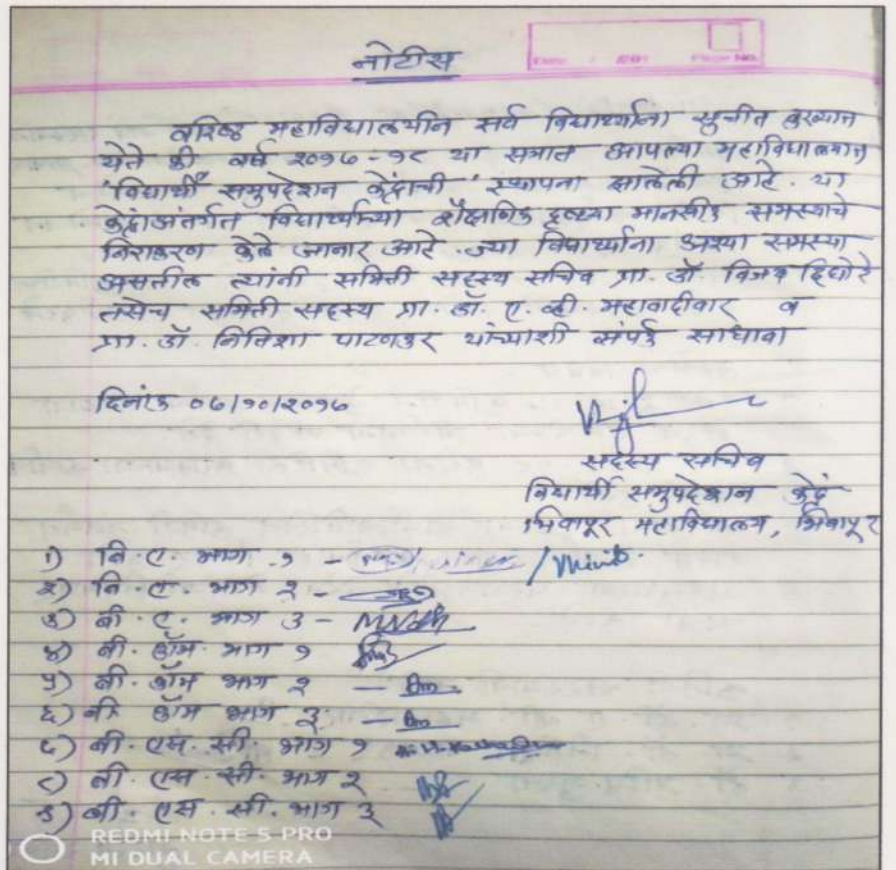 नोटीस
वरिष्ठ महाविद्यालयीन सर्व विद्यार्थ्यांना सुचीत करण्यात
येते की वर्ष २०१७-१८ या सत्रात आपल्या महाविद्यालयात
'विद्यार्थी समुपदेशन केंद्राची' स्थापना झालेली आहे. या
केंद्राअंतर्गत विद्यार्थ्यांच्या शैक्षणिक दृष्ट्या मानसीक समस्याचे
निराकरण केले जाणार आहे. ज्या विद्यार्थ्यांना अश्या समस्या
असतील त्यांनी समिती सदस्य सचिव प्रा. डॉ विजय दिघोरे
तसेच समिती सदस्य प्रा. डॉ. ए. व्ही. महावादीवार व
प्रा. डॉ. नितिशा पाटणकर यांच्याशी संपर्क साधावा
दिनांक ०७/१०/२०१७
सदस्य सचिव
विद्यार्थी समुपदेशन केंद्र
भिवापूर महाविद्यालय, भिवापूर
१) बि. ए. भाग १ -
२) बि. ए. भाग २ -
३) बी. ए. भाग ३ -
४) बी. कॉम. भाग १
५) बी. कॉम भाग २ -
६) बी कॉम भाग ३ -
७) बी. एस. सी. भाग १
८) बी. एस. सी. भाग २
९) बी. एस. सी. भाग ३
REDMI NOTE 5 PRO
MI DUAL CAMERA